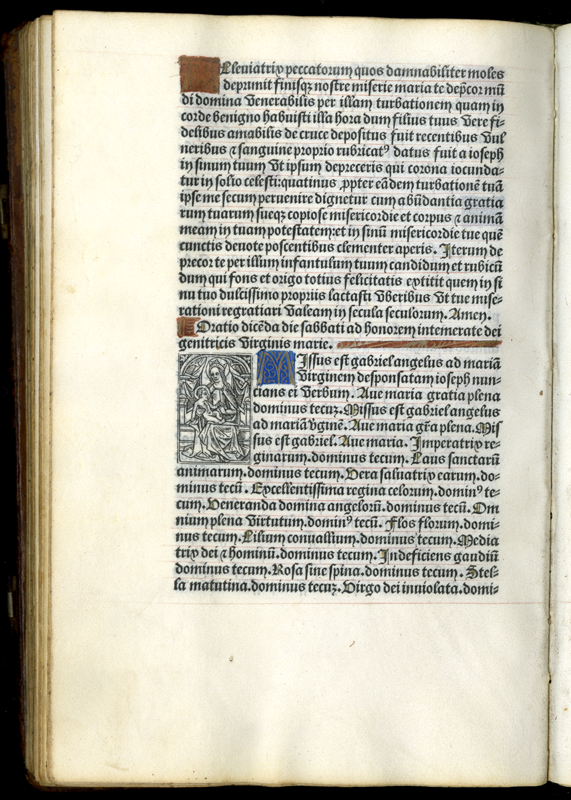 Elleuiatrix peccatorum quos damnabiliter moles
deprimit finisqꝫ nostre miserie maria te dep̄cor mū
di domina Venerabilis per illam turbationem quam in
corde benigno habuisti illa hora dum filius tuus Vere fi-
delibus amabilis de cruce depositus fuit recentibus Vul
neribus ⁊ sanguine proprio rubricatꝰ datus fuit a ioseph
in sinum tuum Vt ipsum depreceris qui corona iocunda-
tur in solio celesti:quatinus ꝓpter eādem turbationē tuā
ipse me secum peruenire dignetur cum abūdantia gratia
rum tuarum sueqꝫ copiose misericordie et corpus ⁊ animā
meam in tuam potestatem:et in sinū misericordie tue quē
cunctis deuote poscentibus clementer aperis. Iterum de
precor te per illum infantulum tuum candidum et rubicū
dum qui fons et origo totius felicitatis extitit quem in si
nu tuo dulcissimo propriis lactasti Vberibus Vt tue mise-
rationi regratiari Valeam in secula seculorum. Amen.
Oratio dicēda die sabbati ad honorem intemerate dei
genitricis Virginis marie.
Missus est gabriel angelus ad mariā
Virginem desponsatam ioseph nun-
cians ei Verbum. Aue maria gratia plena
dominus tecuꝫ. Missus est gabriel angelus
ad mariā v̄ginē. Aue maria gr̄a plena. Mis
sus est gabriel. Aue maria. Imperatrix re-
ginarum.dominus tecum. Laus sanctarū
animarum.dominus tecum. Vera saluatrix earum.do-
minus tecū. Excellentissima regina celorum.dominꝰ te-
cum. Veneranda domina angelorū.dominus tecū. Om
nium plena Virtutum.dominꝰ tecū. Flos florum.domi-
nus tecum. Lilium conuallium.dominus tecum. Media
trix dei ⁊ hominū.dominus tecum. Indeficiens gaudiū
dominus tecum. Rosa sine spina.dominus tecum. Stel-
la matutina.dominus tecuꝫ. Virgo dei inuiolata.domi-